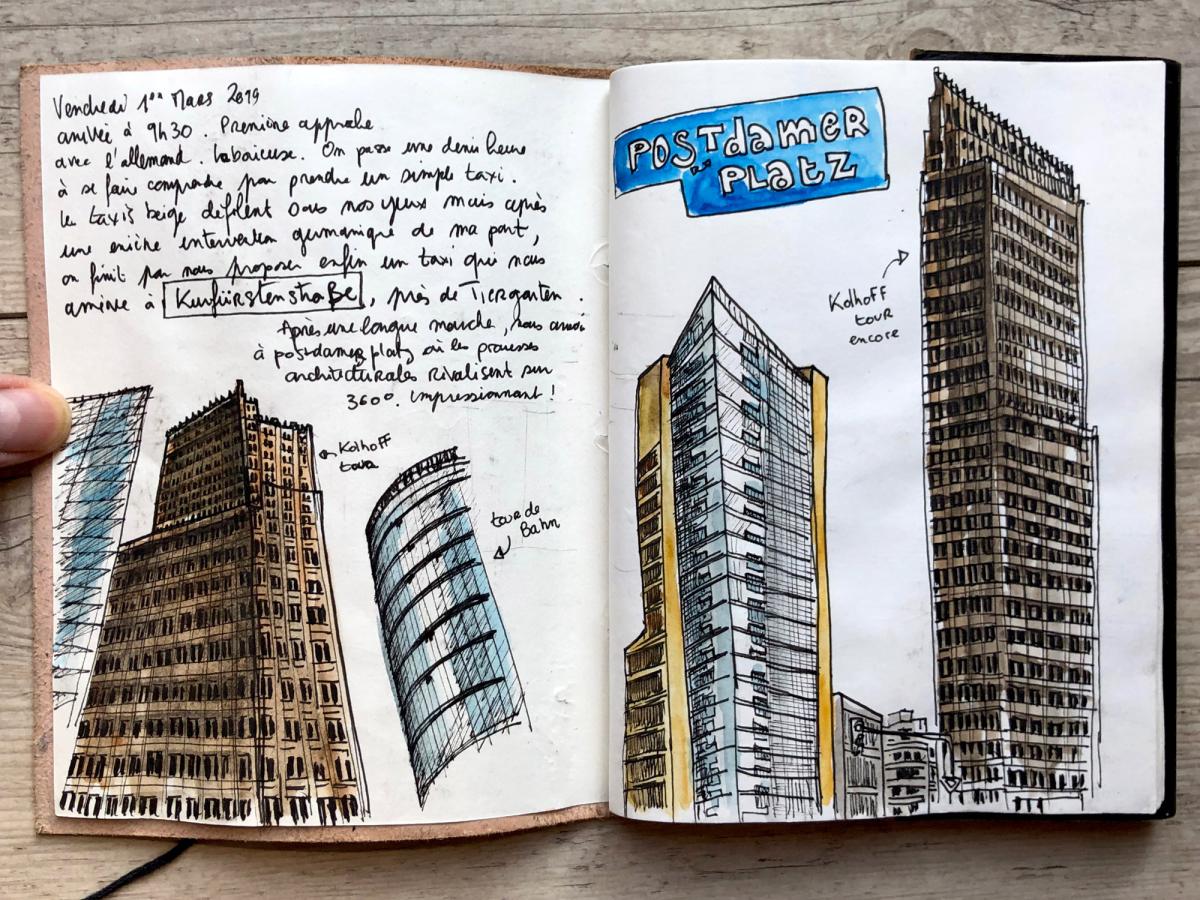 Vendredi 1er Mars 2019
arrivée à 9h30. Première approche
avec l'allemand. Laborieuse. On passe une demi heure
à se faire comprendre pour prendre un simple taxi.
le taxis beige défilent sous nos yeux mais après
une enième intervention germanique de ma part,
on finit par nous proposer enfin un taxi qui nous
amène à Kurfürstenstraße, près de Tiergarten.
Après une longue marche, nous
à postdamer platz où les prouesses
architecturales rivalisent sur
360°. impressionnant !
Kolhoff
tour
tour de
Bahn
POSTdamer
PLatZ
Kolhoff
tour
encore